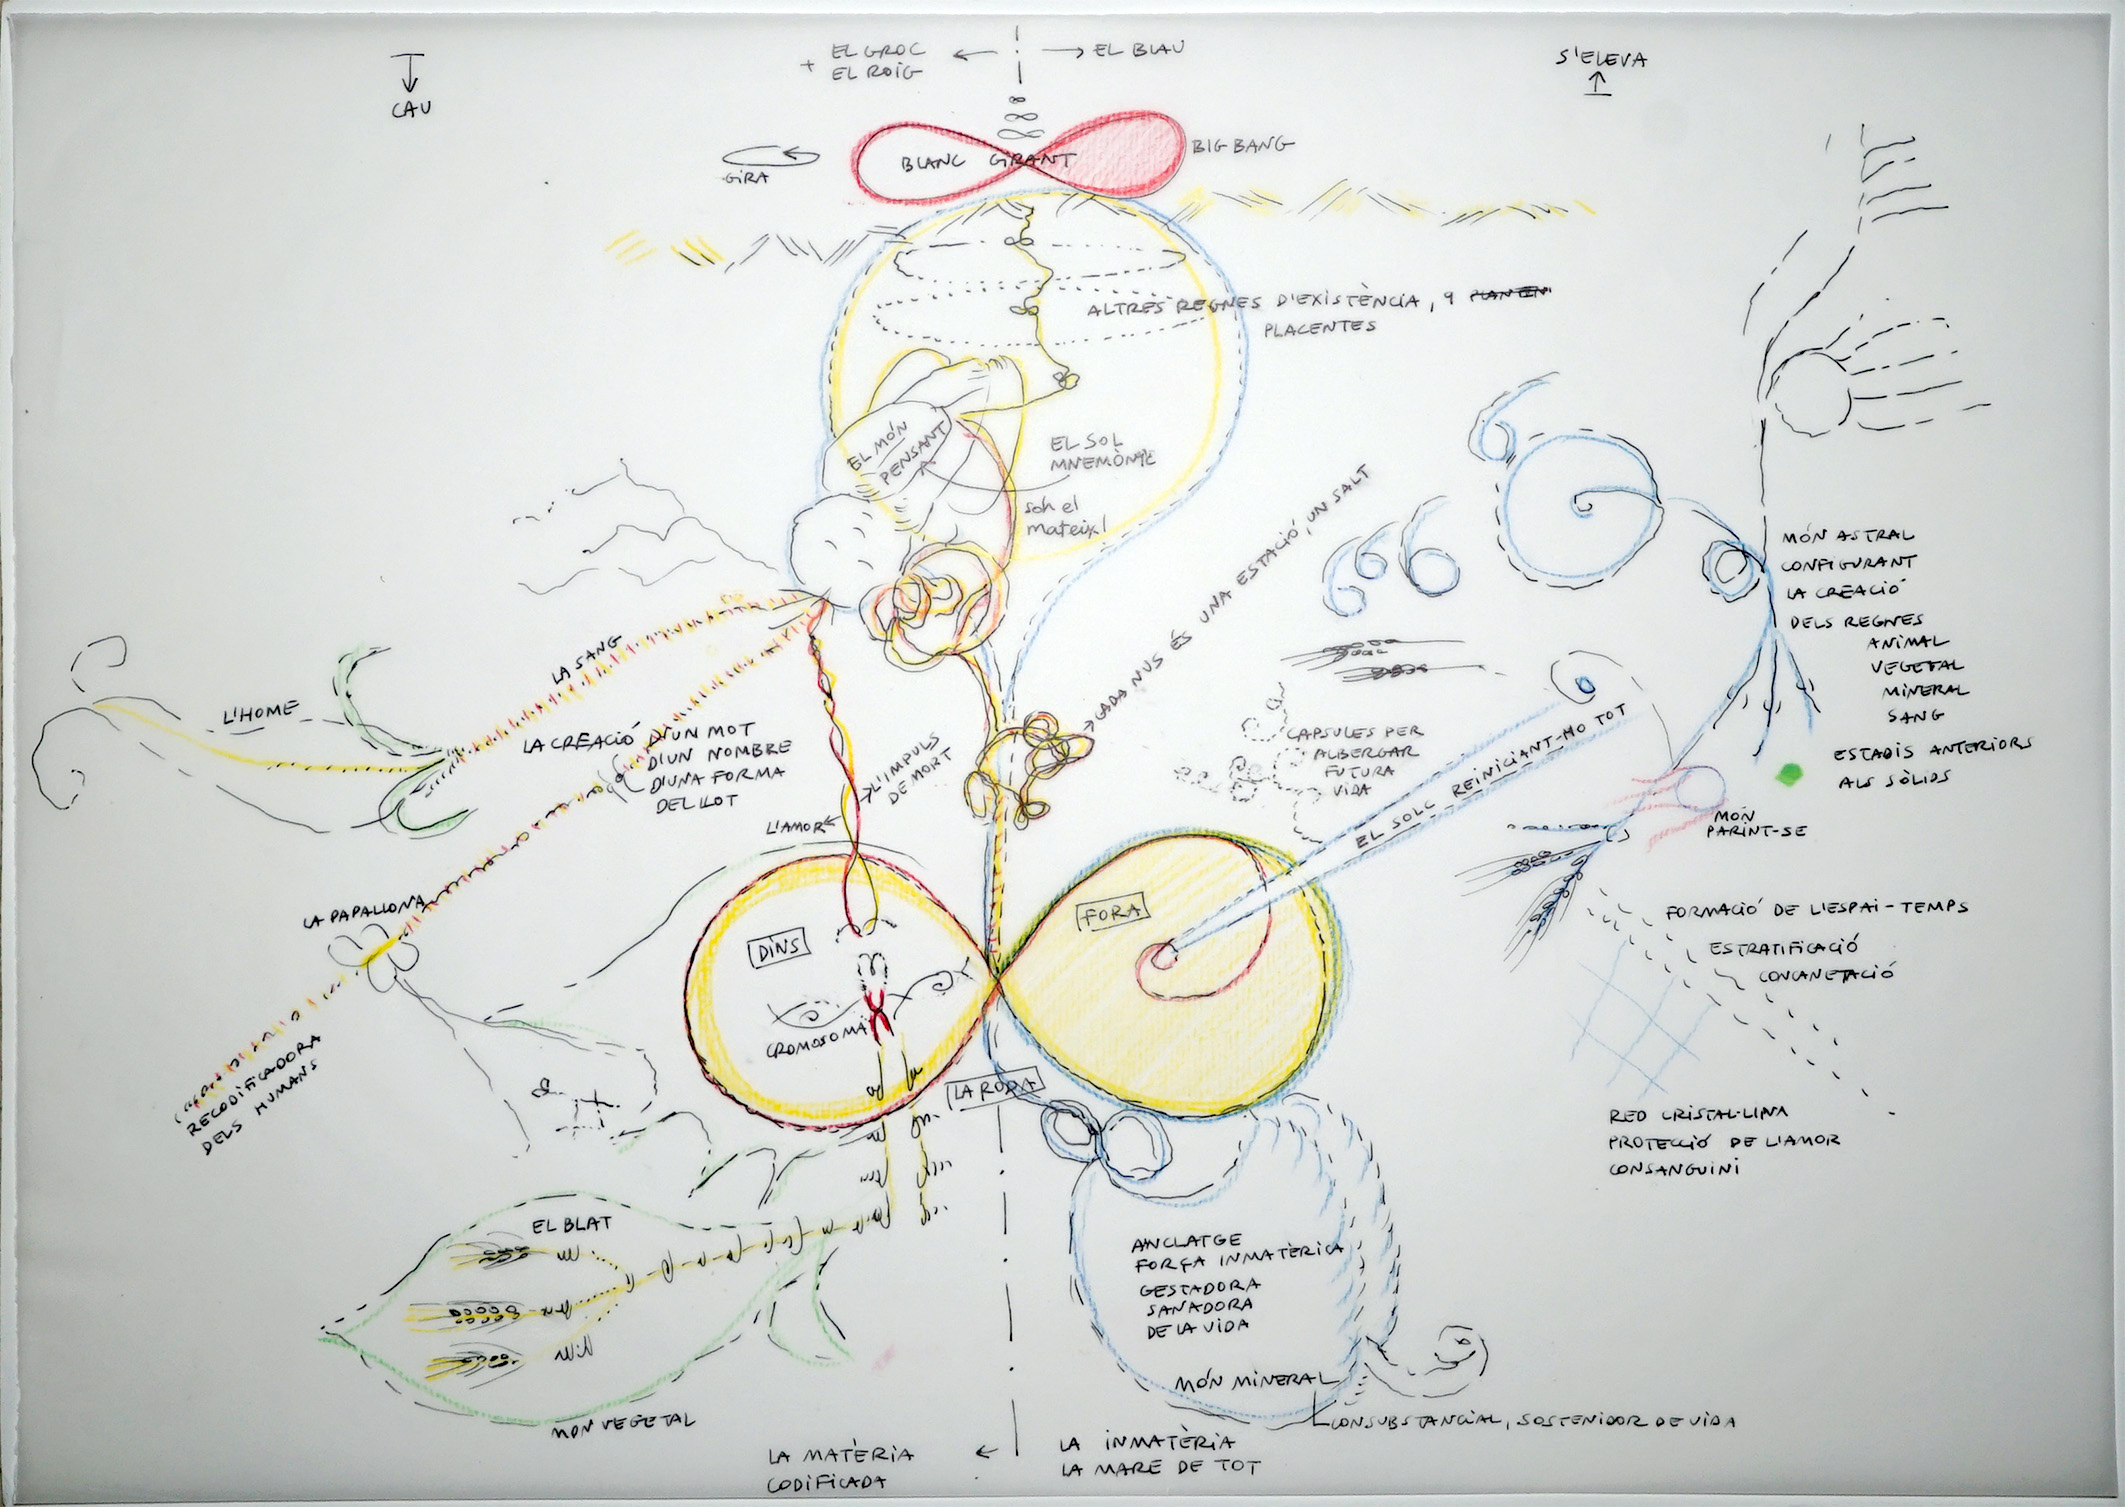 EL GROC ← → EL BLAU
+ EL ROIG
S'ELEVA
CAU
BLANC GIRANT
BIG BANG
GIRA
ALTRES REGNES D'EXISTÈNCIA, 9
PLACENTES
EL MÓN
PENSANT
EL SOL
MNEMÒNIC
són el
mateix
CADA NUS ÉS UNA ESTACIÓ, UN SALT
MÓN ASTRAL
CONFIGURANT
LA CREACIÓ
DELS REGNES
ANIMAL
VEGETAL
MINERAL
SANG
ESTADIS ANTERIORS
ALS SÒLIDS
LA SANG
L'HOME
LA CREACIÓ D'UN MOT
D'UN NOMBRE
D'UNA FORMA
DEL LLOT
L'IMPULS
DE MORT
L'AMOR
CAPSULES PER
ALBERGAR
FUTURA
VIDA
EL SOLC REINICIANT-HO TOT
MÓN
PARINT-SE
LA PAPALLONA
DINS
FORA
FORMACIÓ DE L'ESPAI-TEMPS
ESTRATIFICACIÓ
CONCANETACIÓ
CROMOSOMA
RECODIFICADORA
DELS HUMANS
LA RODA
RED CRISTAL·LINA
PROTECCIÓ DE L'AMOR
CONSANGUINI
EL BLAT
ANCLATGE
FORÇA INMATÈRICA
GESTADORA
SANADORA
DE LA VIDA
MÓN MINERAL
CONSUBSTANCIAL, SOSTENIDOR DE VIDA
MON VEGETAL
LA MATÈRIA ←
CODIFICADA
LA INMATÈRIA
LA MARE DE TOT